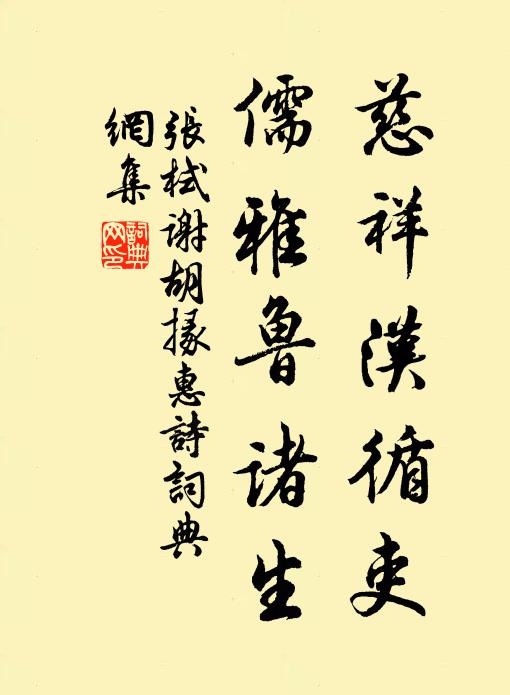 慈祥漢循吏
儒雅魯诸生
張栻谢胡掾惠詩詞典
網集
詞典
网印